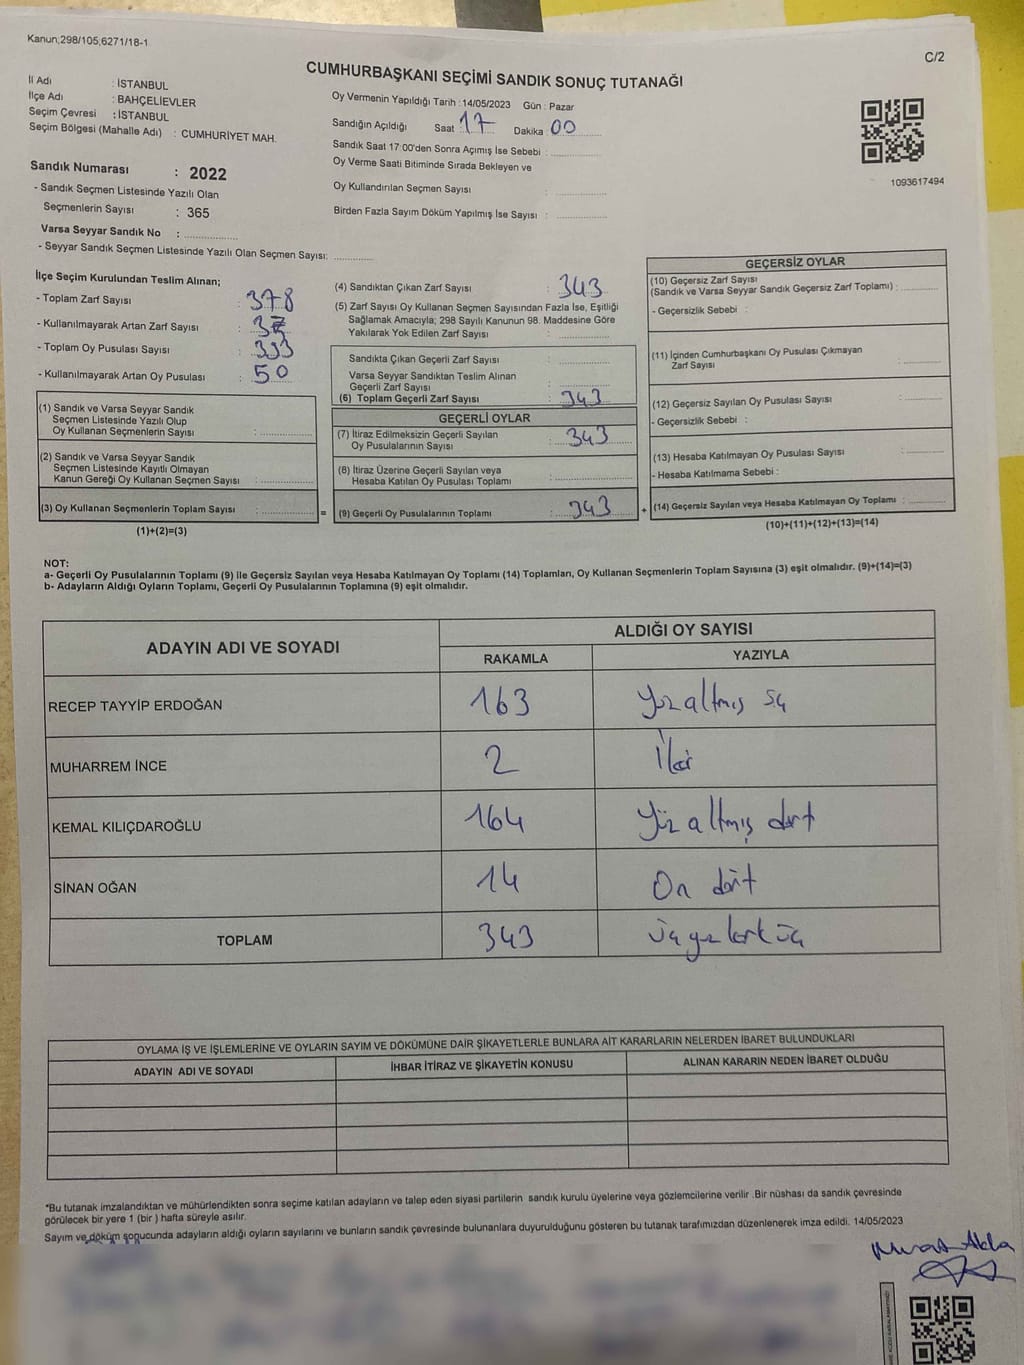 Kanun;298/105,6271/18-1
C/2
CUMHURBAŞKANI SEÇİMİ SANDIK SONUÇ TUTANAĞI
İl Adı : İSTANBUL
İlçe Adı : BAHÇELİEVLER
Seçim Çevresi : İSTANBUL
Seçim Bölgesi (Mahalle Adı) : CUMHURİYET MAH.
Sandık Numarası : 2022
- Sandık Seçmen Listesinde Yazılı Olan
Seçmenlerin Sayısı : 365
Varsa Seyyar Sandık No :
- Seyyar Sandık Seçmen Listesinde Yazılı Olan Seçmen Sayısı:
Oy Vermenin Yapıldığı Tarih : 14/05/2023 Gün : Pazar
Sandığın Açıldığı Saat : 17 Dakika : 00
Sandık Saat 17:00'den Sonra Açımış İse Sebebi :
Oy Verme Saati Bitiminde Sırada Bekleyen ve
Oy Kullandırılan Seçmen Sayısı :
Birden Fazla Sayım Döküm Yapılmış İse Sayısı :
1093617494
İlçe Seçim Kurulundan Teslim Alınan;
- Toplam Zarf Sayısı : 378
- Kullanılmayarak Artan Zarf Sayısı :
- Toplam Oy Pusulası Sayısı :
- Kullanılmayarak Artan Oy Pusulası : 50
(1) Sandık ve Varsa Seyyar Sandık
Seçmen Listesinde Yazılı Olup
Oy Kullanan Seçmenlerin Sayısı :
(2) Sandık ve Varsa Seyyar Sandık
Seçmen Listesinde Kayıtlı Olmayan
Kanun Gereği Oy Kullanan Seçmen Sayısı :
(3) Oy Kullanan Seçmenlerin Toplam Sayısı : =
(1)+(2)=(3)
(4) Sandıktan Çıkan Zarf Sayısı : 343
(5) Zarf Sayısı Oy Kullanan Seçmen Sayısından Fazla İse, Eşitliği
Sağlamak Amacıyla; 298 Sayılı Kanunun 98. Maddesine Göre
Yakılarak Yok Edilen Zarf Sayısı :
Sandıkta Çıkan Geçerli Zarf Sayısı :
Varsa Seyyar Sandıktan Teslim Alınan
Geçerli Zarf Sayısı :
(6) Toplam Geçerli Zarf Sayısı : 343
GEÇERLİ OYLAR
(7) İtiraz Edilmeksizin Geçerli Sayılan
Oy Pusulalarının Sayısı : 343
(8) İtiraz Üzerine Geçerli Sayılan veya
Hesaba Katılan Oy Pusulası Toplamı :
(9) Geçerli Oy Pusulalarının Toplamı : 343 +
GEÇERSİZ OYLAR
(10) Geçersiz Zarf Sayısı
(Sandık ve Varsa Seyyar Sandık Geçersiz Zarf Toplamı) :
- Geçersizlik Sebebi :
(11) İçinden Cumhurbaşkanı Oy Pusulası Çıkmayan
Zarf Sayısı :
(12) Geçersiz Sayılan Oy Pusulası Sayısı :
- Geçersizlik Sebebi :
(13) Hesaba Katılmayan Oy Pusulası Sayısı :
- Hesaba Katılmama Sebebi :
(14) Geçersiz Sayılan veya Hesaba Katılmayan Oy Toplamı :
(10)+(11)+(12)+(13)=(14)
NOT:
a- Geçerli Oy Pusulalarının Toplamı (9) ile Geçersiz Sayılan veya Hesaba Katılmayan Oy Toplamı (14) Toplamları, Oy Kullanan Seçmenlerin Toplam Sayısına (3) eşit olmalıdır. (9)+(14)=(3)
b- Adayların Aldığı Oyların Toplamı, Geçerli Oy Pusulalarının Toplamına (9) eşit olmalıdır.
ADAYIN ADI VE SOYADI
ALDIĞI OY SAYISI
RAKAMLA YAZIYLA
RECEP TAYYİP ERDOĞAN 163 Yüz altmış üç
MUHARREM İNCE 2 İki
KEMAL KILIÇDAROĞLU 164 Yüz altmış dört
SİNAN OĞAN 14 On dört
TOPLAM 343 üçyüzkırküç
OYLAMA İŞ VE İŞLEMLERİNE VE OYLARIN SAYIM VE DÖKÜMÜNE DAİR ŞİKAYETLERLE BUNLARA AİT KARARLARIN NELERDEN İBARET BULUNDUKLARI
ADAYIN ADI VE SOYADI İHBAR İTİRAZ VE ŞİKAYETİN KONUSU ALINAN KARARIN NEDEN İBARET OLDUĞU
*Bu tutanak imzalandıktan ve mühürlendikten sonra seçime katılan adayların ve talep eden siyasi partilerin sandık kurulu üyelerine veya gözlemcilerine verilir .Bir nüshası da sandık çevresinde
görülecek bir yere 1 (bir ) hafta süreyle asılır.
Sayım ve döküm sonucunda adayların aldığı oyların sayılarını ve bunların sandık çevresinde bulunanlara duyurulduğunu gösteren bu tutanak tarafımızdan düzenlenerek imza edildi. 14/05/2023